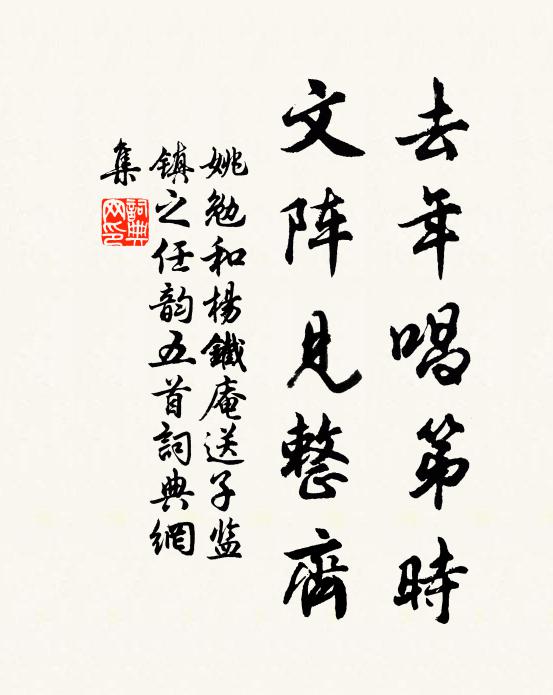 去年唱第時
文阵見整齊
姚勉和楊鐵庵送子监
镇之任韵五首詞典網
集
詞典网印